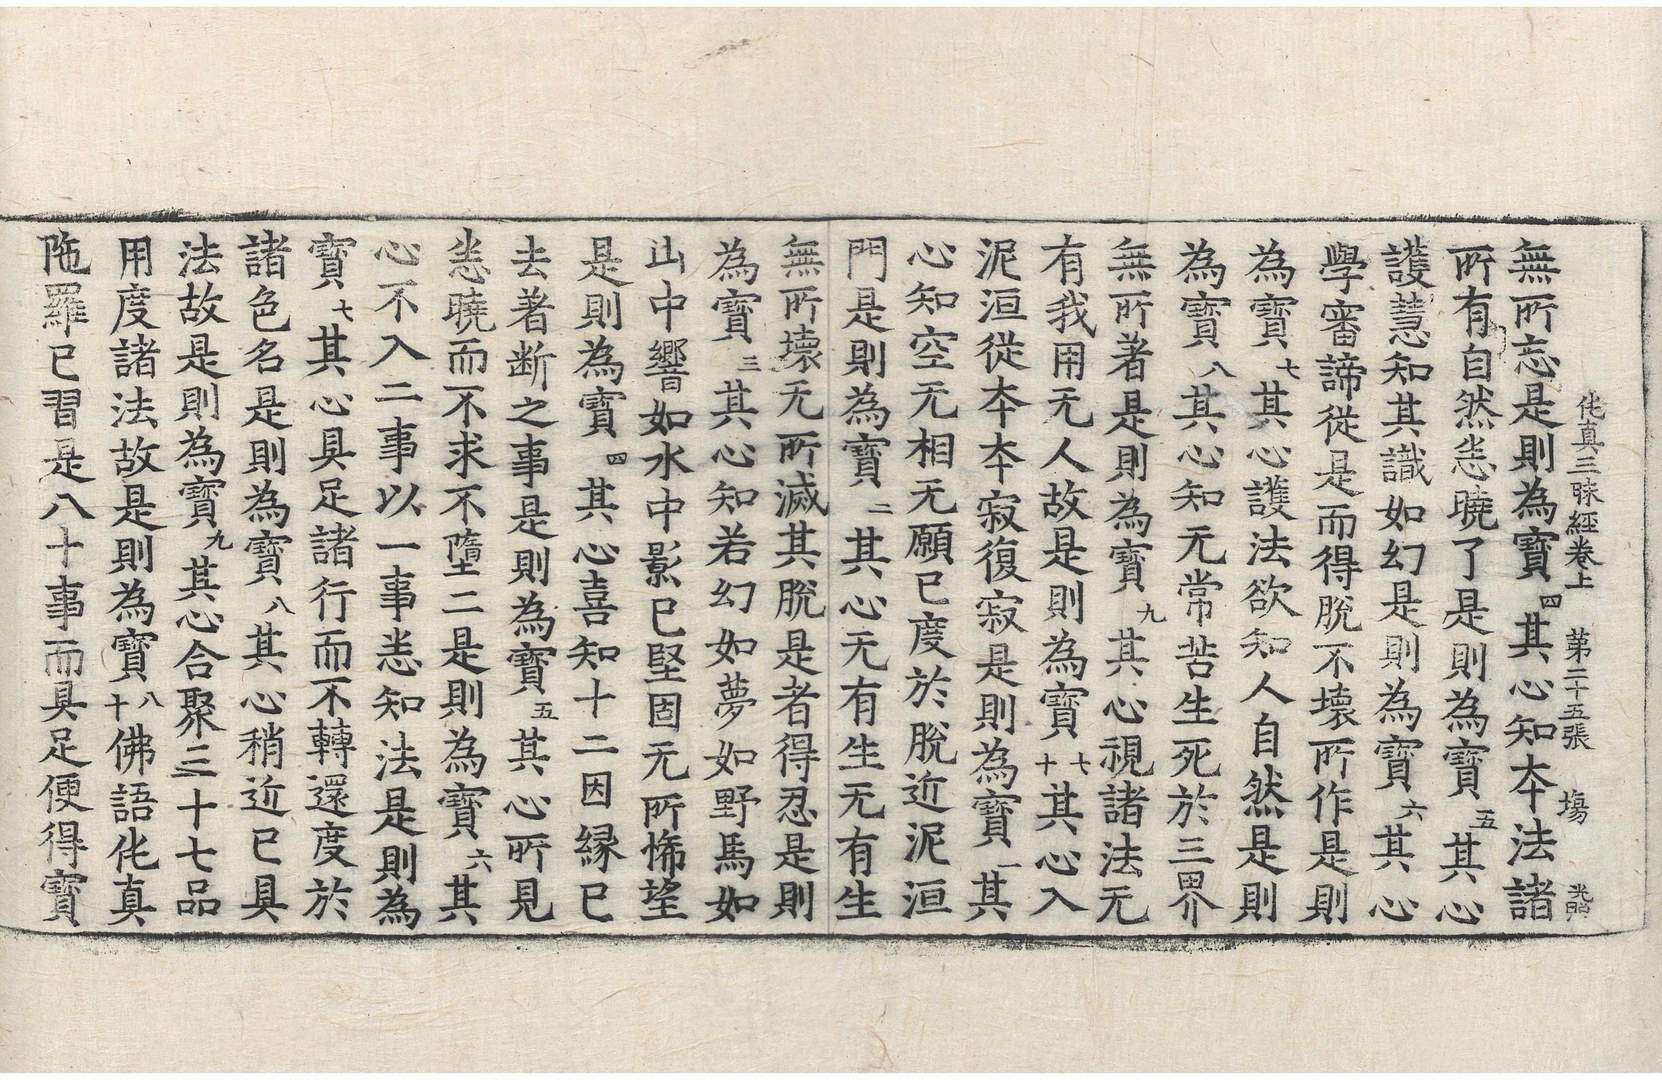 伅真三昧經卷上　第二十五張　塲
無所忘是則為寶四其心知本法諸
所有自然悉曉了是則為寶五其心
護慧知其識如幻是則為寶六其心
學審諦從是而得脫不壞所作是則
為寶七其心護法欲知人自然是則
為寶八其心知无常苦生死於三界
無所著是則為寶九其心視諸法无
有我用无人故是則為寶十七其心入
泥洹從本本寂復寂是則為寶一其
心知空无相无願已度於脫近泥洹
門是則為寶二其心无有生无有生
無所壞无所滅其脫是者得忍是則
為寶三其心知若幻如夢如野馬如
山中響如水中影已堅固无所悕望
是則為寶四其心喜知十二因緣已
去著断之事是則為寶五其心所見
悉曉而不求不墮二是則為寶六其
心不入二事以一事悉知法是則為
寶七其心具足諸行而不轉還度於
諸色名是則為寶八其心稍近已具
法故是則為寶九其心合聚三十七品
用度諸法故是則為寶十八佛語伅真
陁羅已習是八十事而具足便得寶